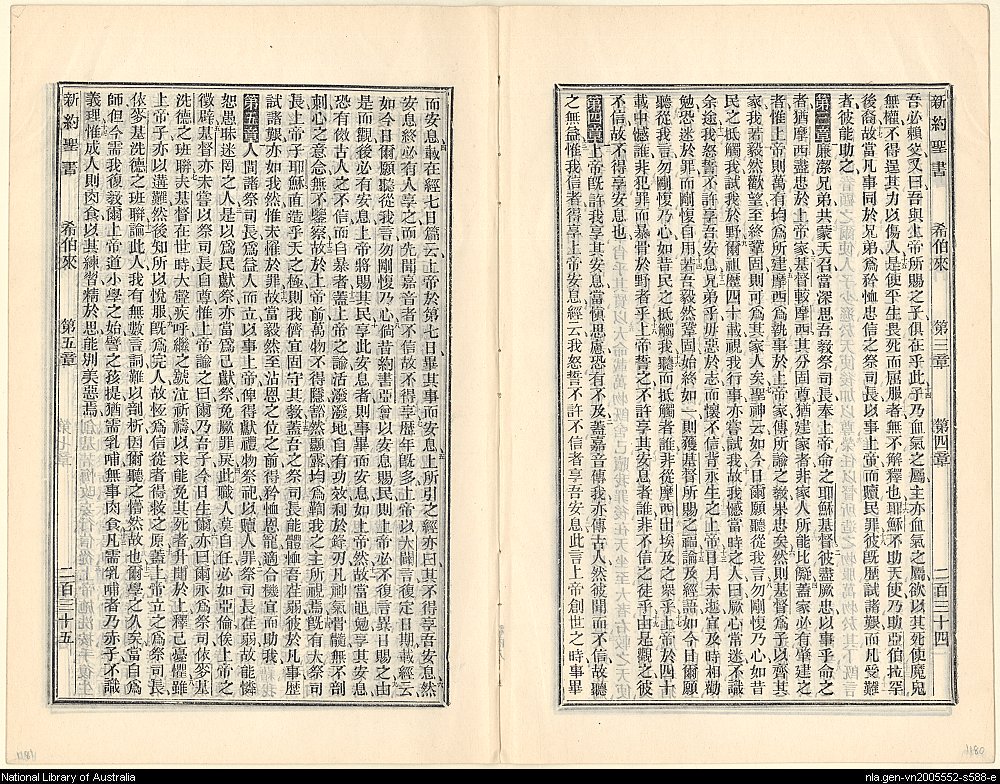 新約聖書 希伯來 第三章 第四章 二百三十四
吾必賴焉又曰吾與上帝所賜之子俱在乎此子乃血氣之屬主亦血氣之屬欲以其死使魔鬼
無權不得逞其力以傷人是使平生畏死而屈服者無不解釋也耶穌不助天使乃助亞伯拉罕
後裔故當凡事同於兄弟爲矜恤忠信之祭司長以事上帝而贖民罪彼旣歷試諸艱而凡受難
者彼能助之
第三章廉潔兄弟共蒙天召當深思吾敎祭司長奉上帝命之耶穌基督彼盡厥忠以事乎命之
者猶摩西盡忠於上帝家基督較摩西其分固尊猶建家者非家人所能比儗蓋家必有肇建之
者惟上帝則萬有均爲所建摩西爲執事於上帝家傳所諭之敎果忠矣然則基督爲子以齊其
家我若毅然歡望至終鞏固則可爲其家人矣聖神云如今日爾願聽從我言勿剛愎乃心如昔
民之抵觸我試我於野爾祖歷四十載視我行事亦嘗試我故我憾當時之人曰厥心常迷不識
余途我怒誓不許享吾安息兄弟乎毋惡於志而懷不信背永生之上帝日月未逝宜及時相勸
勉恐迷於罪而剛愎自用若吾毅然鞏固始終如一則獲基督所賜之福諭及經語如今日爾願
聽從我言勿剛愎乃心如昔民之抵觸我聽而抵觸者誰非從摩西出埃及之衆乎於四十
載中憾誰非犯罪而暴骨於野者乎上帝誓之不許享其安息者誰非不信之徒乎由是觀之彼
不信故不得享安息也
第四章上帝旣許我享其安息當愼思慮恐有不及蓋嘉音傳我亦傳古人然彼聞而不信故聽
之無益惟我信者得享上帝安息經云我怒誓不許不信者享吾安息此言上帝創世之時事畢
而安息載在經七日篇云上帝於第七日畢其事而安息上所引之經亦曰其不得享吾安息然
安息終必有人享之而先聞嘉音者不信故不得享歷年旣多上帝以大闢言復定日期載經云
如今日爾願聽從我言勿剛愎乃心倘昔約書亞曾以安息賜民則上帝必不復言異日賜之由
是而觀後必有安息上帝將賜其民享此安息者則事畢而安息如上帝然故當黽勉享其安息
恐有傚古人之不信而自暴者蓋上帝之諭活潑潑地自有功效利於鋒刃凡神氣骨髓無不剖
刺心之意念無不鑒察故於上帝前萬物不得隱豁然顯露均爲鞫我之主所視焉旣有大祭司
長上帝子耶穌直造乎天之極則我儕宜固守其敎蓋吾之祭司長能體恤吾荏弱彼於凡事歷
試諸艱亦如我然惟未罹於罪故當毅然至沾恩之位之前得矜恤恩寵適合機宜而助我
第五章人間諸祭司長爲益人而立以事上帝俾得獻禮物祭祀以贖人罪祭司長荏弱故能憐
恕愚昧迷罔之人是以爲民獻祭亦當爲己獻祭免厥罪戾此職人莫自任必如亞倫俟上帝之
徵辟基督亦未嘗以祭司長自尊惟上帝諭之曰爾乃吾子今日生爾亦曰爾永爲祭司依麥基
洗德之班聯夫基督在世時大聲疾呼繼之號泣祈禱以求能免其死者升聞於上釋己憂懼雖
上帝子亦以遘難然後知所以悅服旣爲完人故恆爲信從者得救之原蓋上帝立之爲祭司長
依麥基洗德之班聯諭此人我有無數言詞難以剖析因爾聽之懵然故也爾學之久矣當自爲
師但今需我復敎爾上帝道小學之始譬之孩提猶需乳哺無事肉食凡需乳哺者乃赤子不識
義理惟成人則肉食以其練習精於思能別美惡焉
新約聖書 希伯來 第五章 二百三十五
National Library of Australia
nla.gen-vn2005552-s588-e